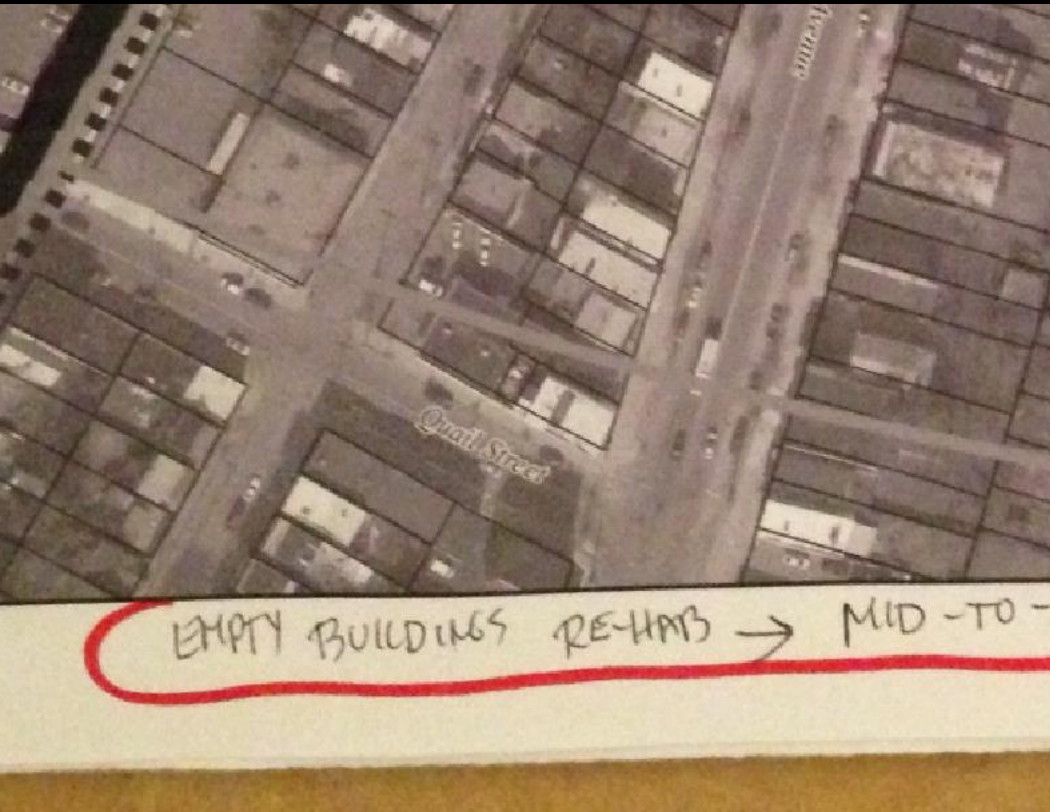 Avenue
Quail Street
EMPTY BUILDINGS RE-HAB → MID-TO-